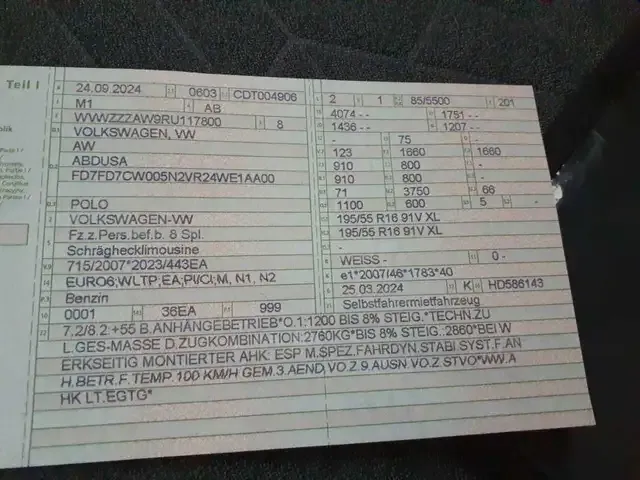 Teil I
24.09.2024 0603 CDT004906
M1 AB
WVWZZZAW9RU117800 8
VOLKSWAGEN, VW
AW
ABDUSA
FD7FD7CW005N2VR24WE1AA00
POLO
VOLKSWAGEN-VW
Fz.z.Pers.bef.b. 8 Spl.
Schräghecklimousine
715/2007*2023/443EA
EURO6;WLTP;EA;PI/CI;M, N1, N2
Benzin
0001 36EA 999
2 1 85/5500 201
4074 - - 1751 - -
1436 - - 1207 - -
- 75 -
123 1660 1660
910 800 -
910 800 -
71 3750 66
1100 600 5 -
195/55 R16 91V XL
195/55 R16 91V XL
-
WEISS - 0 -
e1*2007/46*1783*40
25.03.2024 K HD586143
Selbstfahrermietfahrzeug
7.2/8.2:+55 B.ANHÄNGEBETRIEB*O.1:1200 BIS 8% STEIG.*TECHN.ZU
L.GES-MASSE D.ZUGKOMBINATION:2760KG*BIS 8% STEIG.:2860*BEI W
ERKSEITIG MONTIERTER AHK: ESP M.SPEZ.FAHRDYN.STABI.SYST.F.AN
H.BETR.F.TEMP.100 KM/H GEM.3.AEND.VO.Z.9.AUSN.VO.Z.STVO*WW.A
HK LT.EGTG*